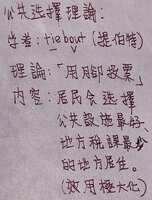 公共選擇理論:
學者:tiebout(提伯特)
理論:「用腳投票」
內容:居民會選擇
公共設施最好、
地方稅課最少
的地方居住。
(效用極大化)